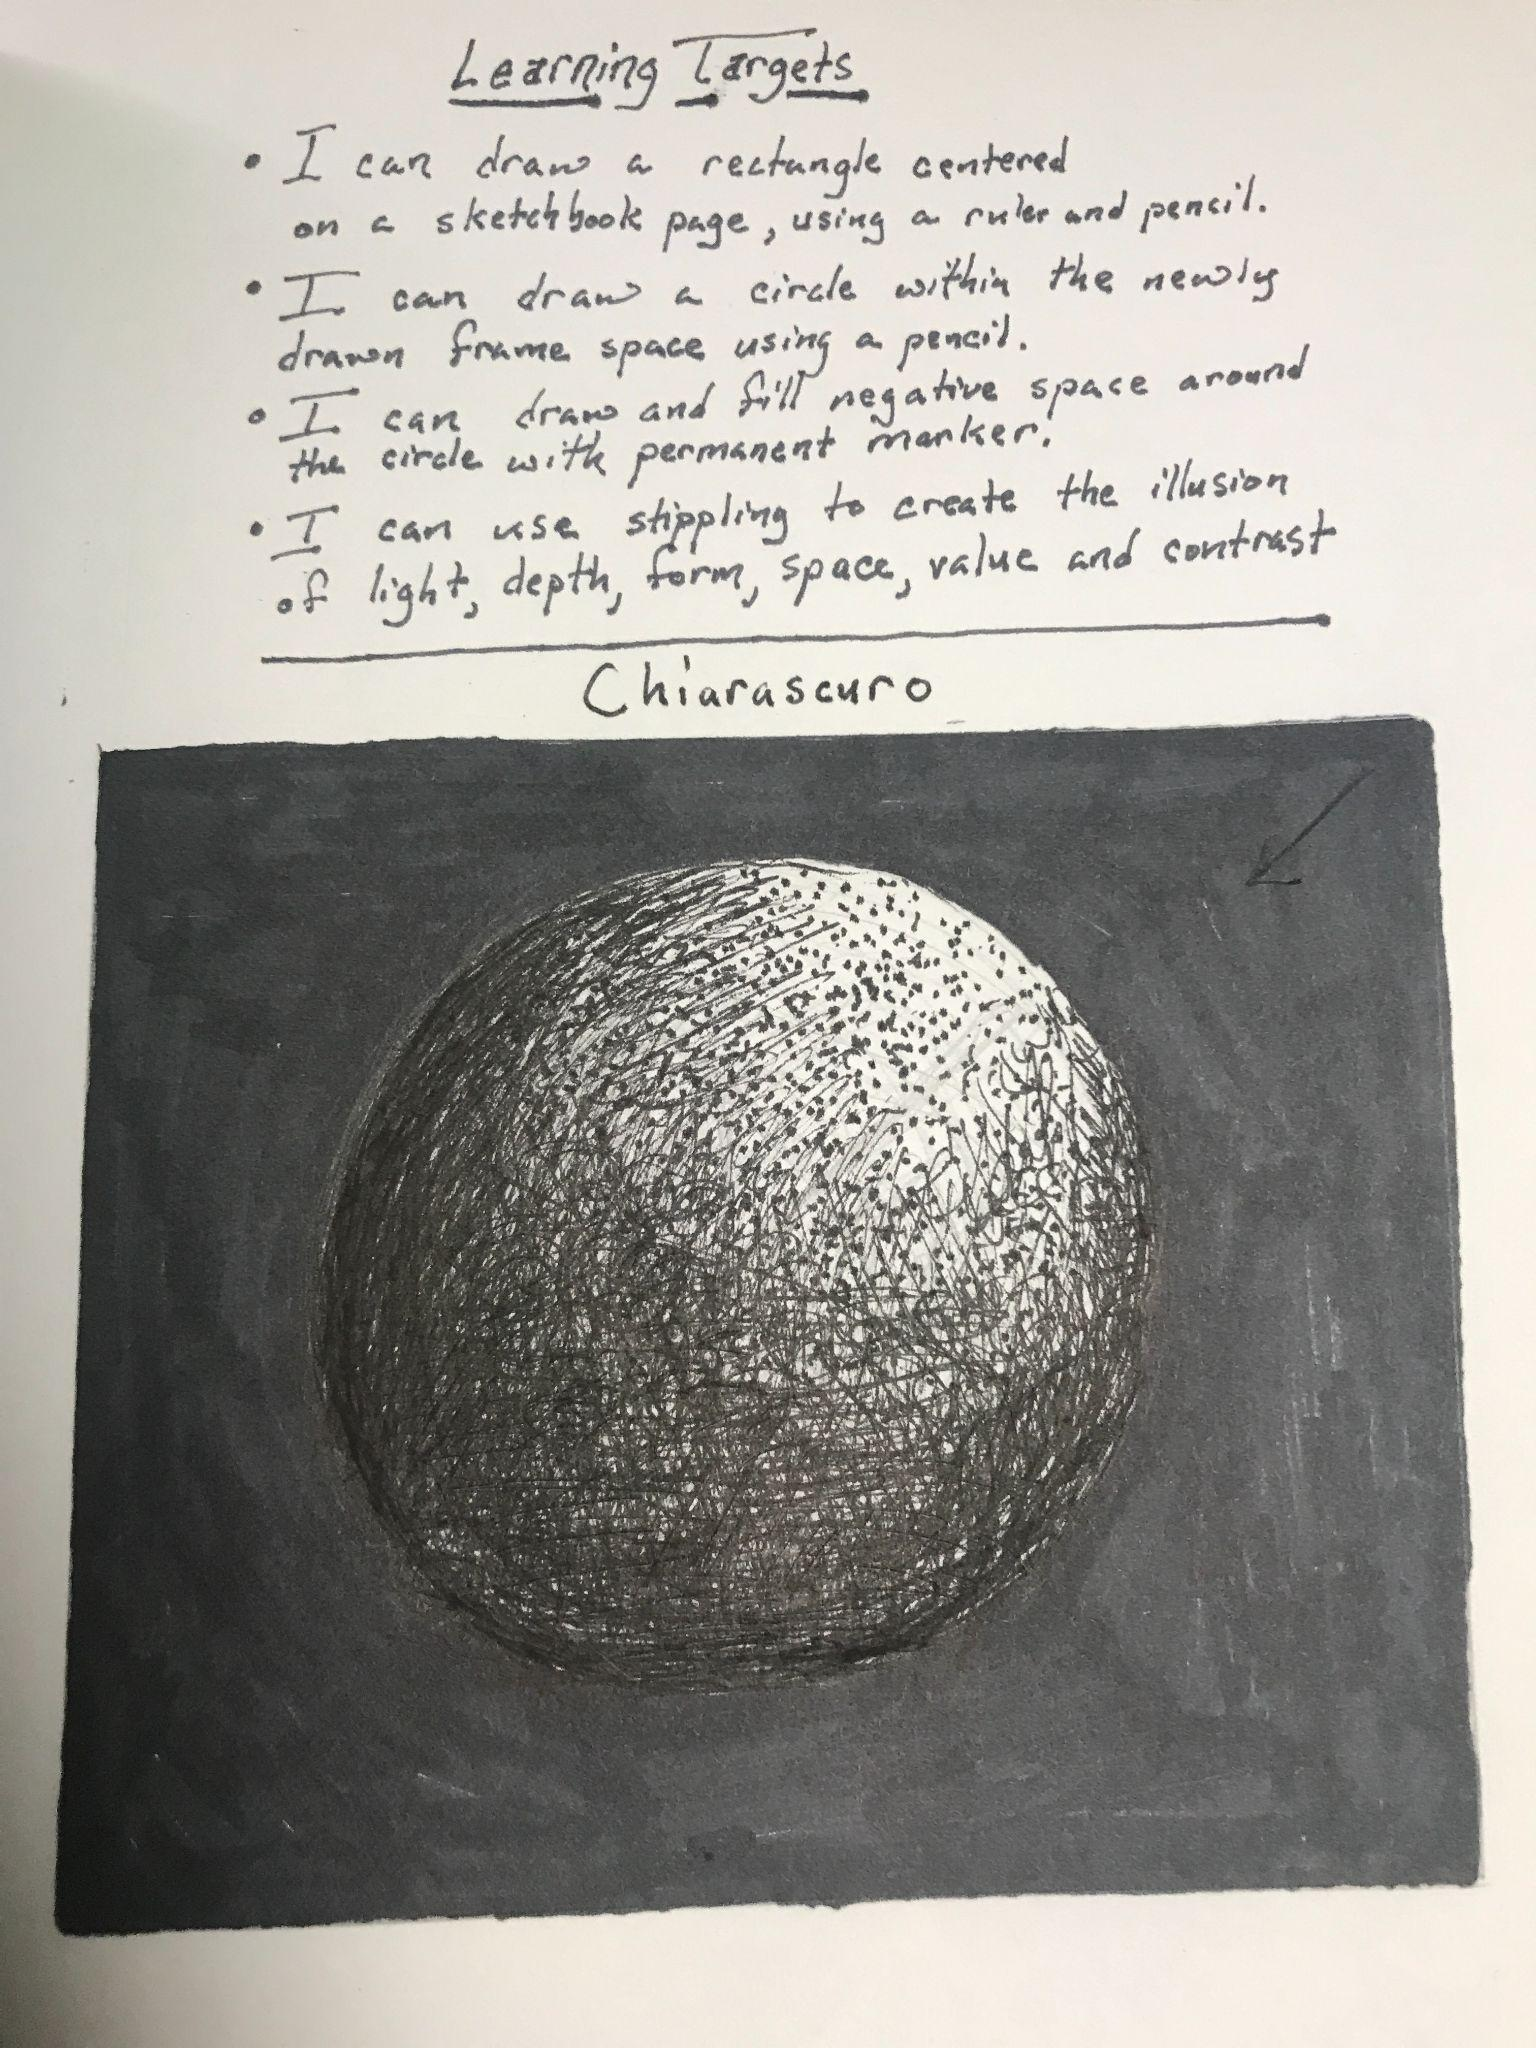 Learning Targets
• I can draw a rectangle centered
on a sketchbook page, using a ruler and pencil.
• I can draw a circle within the newly
drawn frame space using a pencil.
• I can draw and fill negative space around
the circle with permanent marker.
• I can use stippling to create the illusion
of light, depth, form, space, value and contrast
Chiarascuro